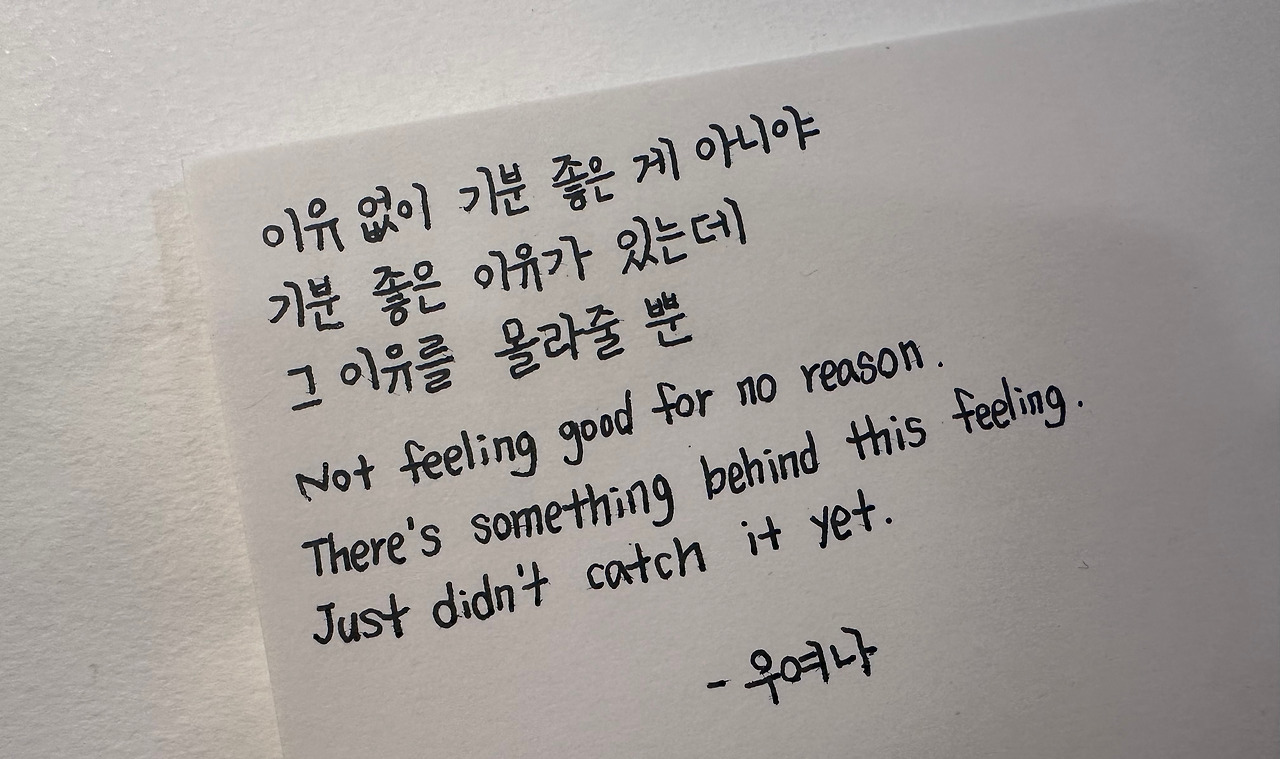 이유 없이 기분 좋은 게 아니야
기분 좋은 이유가 있는데
그 이유를 몰라줄 뿐
Not feeling good for no reason.
There's something behind this feeling.
Just didn't catch it yet.
- 우여나